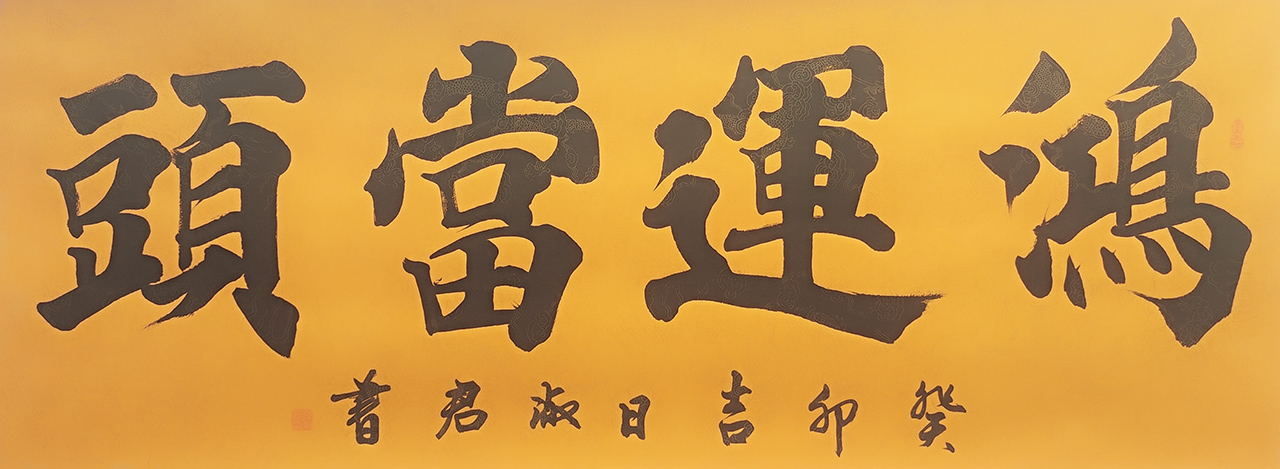 鴻運當頭
癸卯吉日淑君書